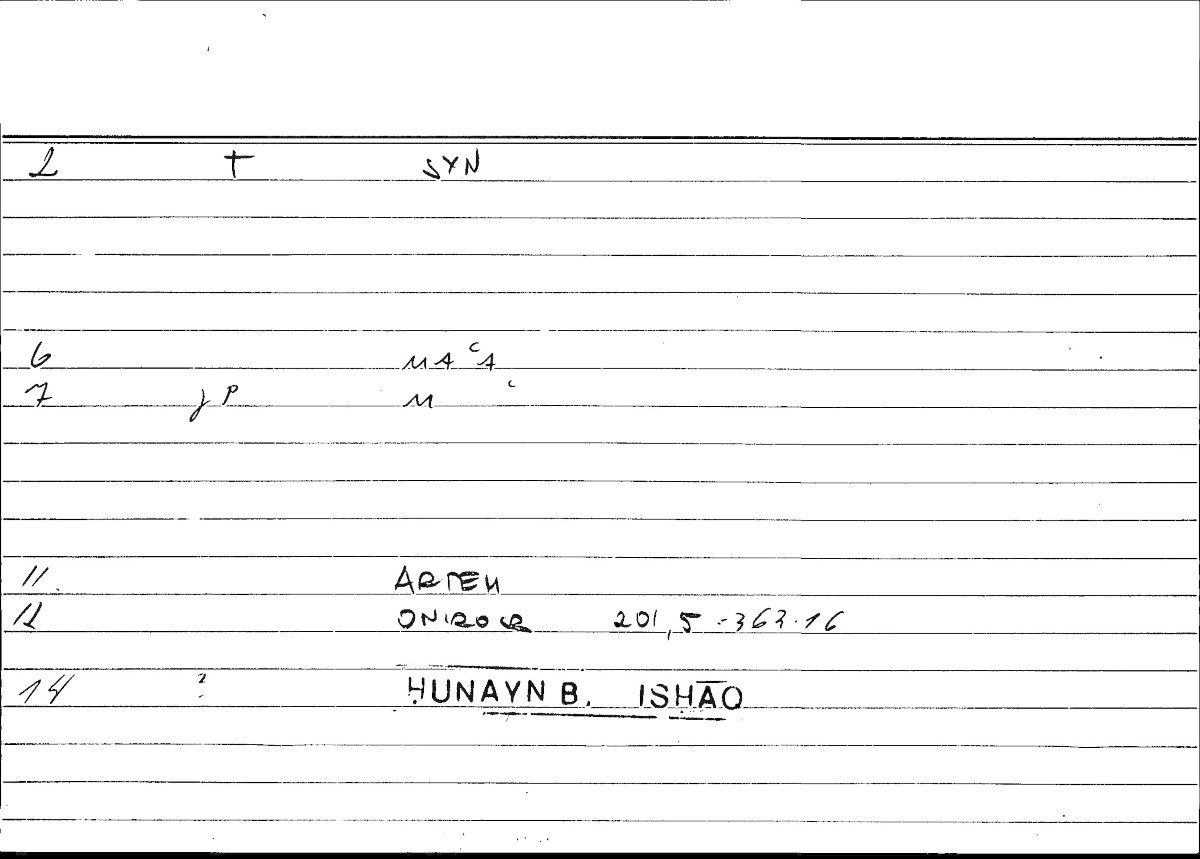 2 † SYN
6 MA ʿA
7 γ P M ʿ
11. ARTEM
12 ONIROCR 201,5-363.16
14 ? ḤUNAYN B. ISḤĀQ